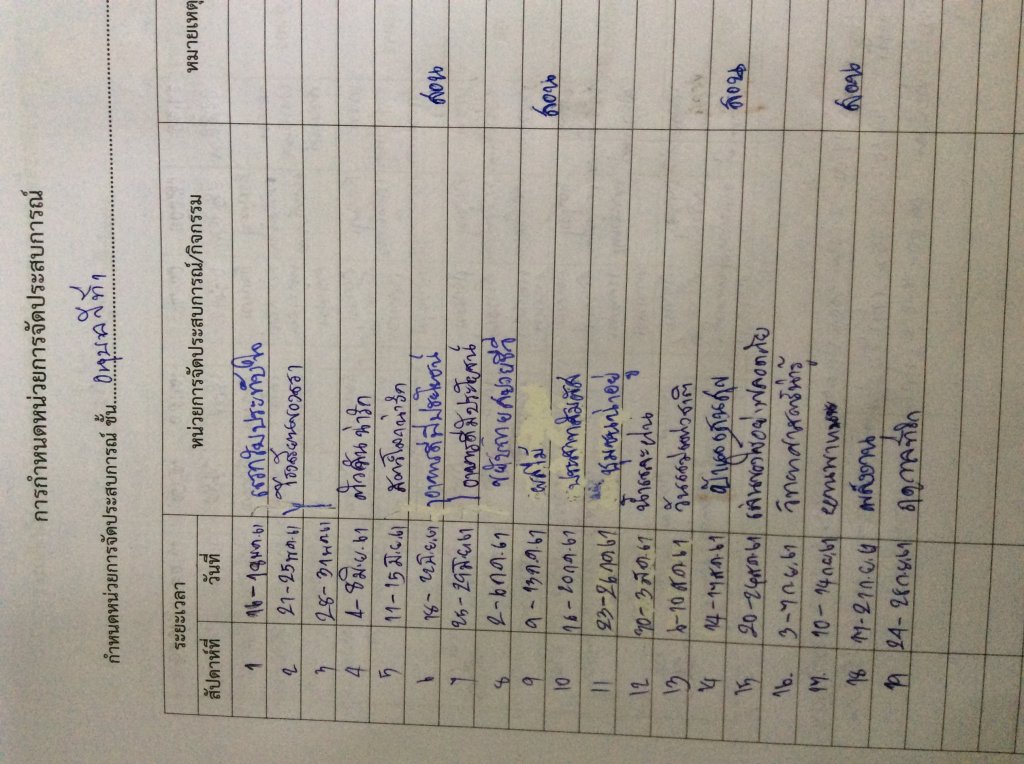 การกำหนดหน่วยการจัดประสบการณ์
กำหนดหน่วยการจัดประสบการณ์ ชั้น อนุบาลสีฟ้า
ระยะเวลา หน่วยการจัดประสบการณ์/กิจกรรม หมายเหตุ
สัปดาห์ที่ วันที่
1 16-18 พ.ค. 61 แรกรับประทับใจ
2 21-25 พ.ค. 61 โรงเรียนของเรา
3 28-31 พ.ค. 61
4 4-8 มิ.ย. 61 ตัวฉันน่ารัก
5 11-15 มิ.ย. 61
6 18-22 มิ.ย. 61 อาหารดีมีประโยชน์ สอน
7 25-29 มิ.ย. 61 อาหารดีมีประโยชน์
8 2-6 ก.ค. 61
9 9-13 ก.ค. 61 ผลไม้
10 16-20 ก.ค. 61 ประสาทสัมผัส สอน
11 23-26 ก.ค. 61 ชุมชนน่าอยู่
12 30-3 ส.ค. 61 น้ำและฝน
13 6-10 ส.ค. 61 วันแม่แห่งชาติ
14 14-17 ส.ค. 61
15 20-24 ส.ค. 61 สอน
16. 3-7 ก.ย. 61 วิทยาศาสตร์น่ารู้
17. 10-14 ก.ย. 61 ยานพาหนะ
18 17-21 ก.ย. 61 พลังงาน สอน
19 24-28 ก.ย. 61